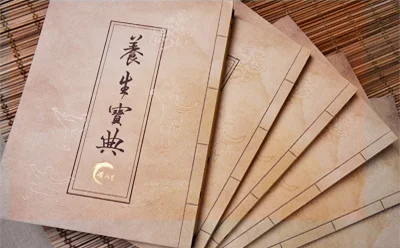 養生寶典